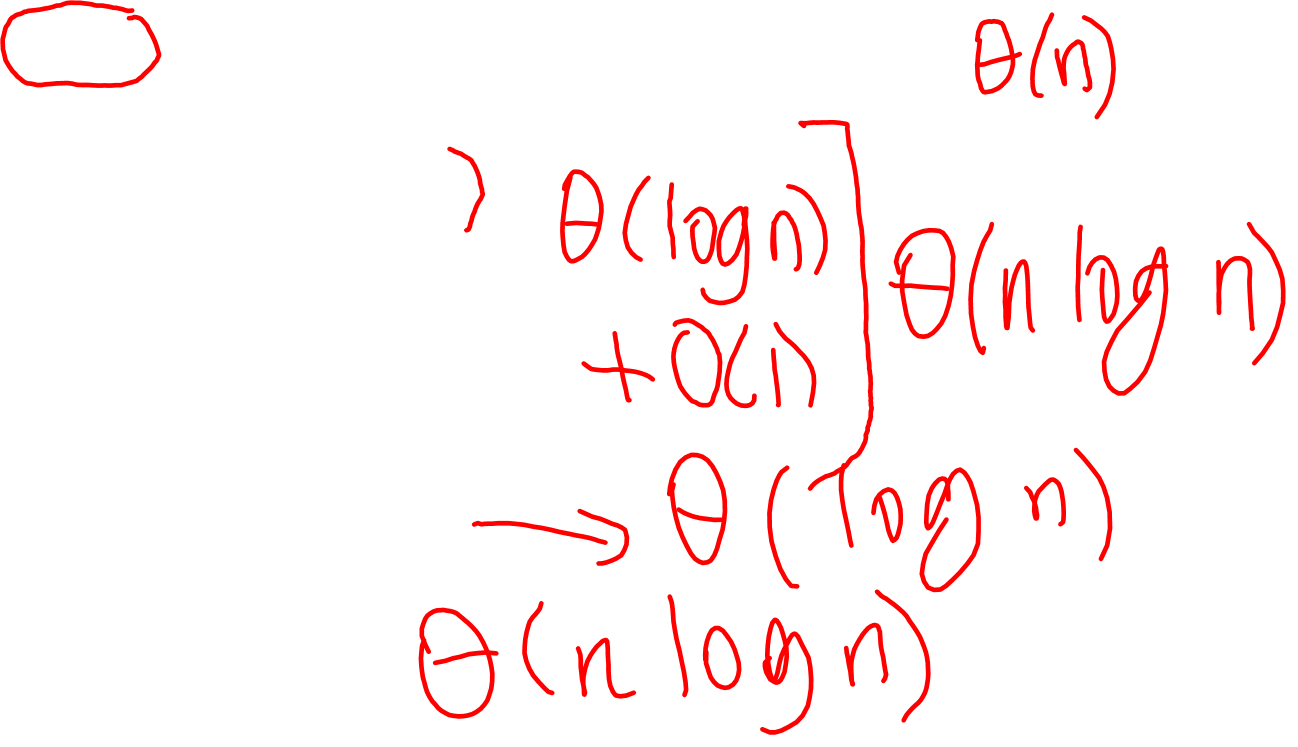 θ(n)
θ(log n)
+ O(1)
θ(n log n)
→ θ(log n)
θ(n log n)